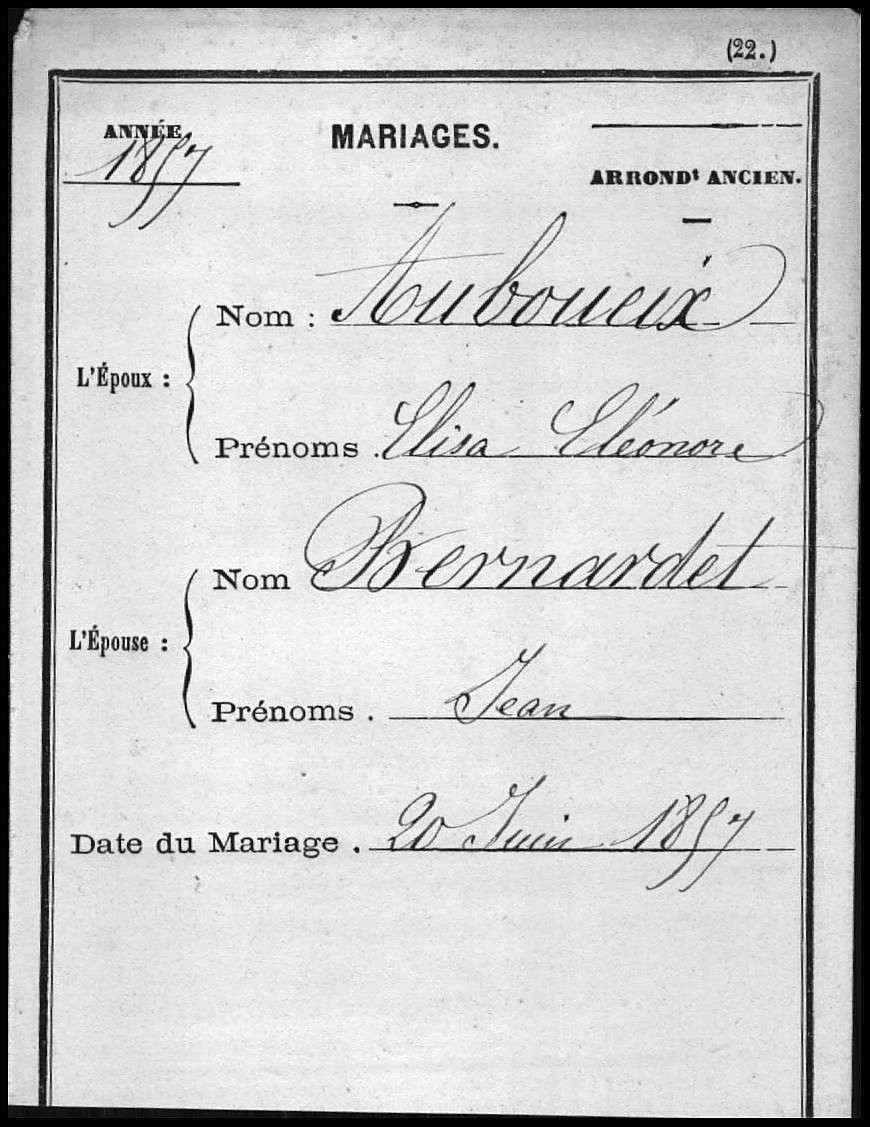 (22.)
ANNÉE
1857
MARIAGES.
ARRONDt ANCIEN.
L'Époux :
Nom : Auboueix
Prénoms . Elisa Eléonore
L'Épouse :
Nom Bernardet
Prénoms . Jean
Date du Mariage . 20 Juin 1857